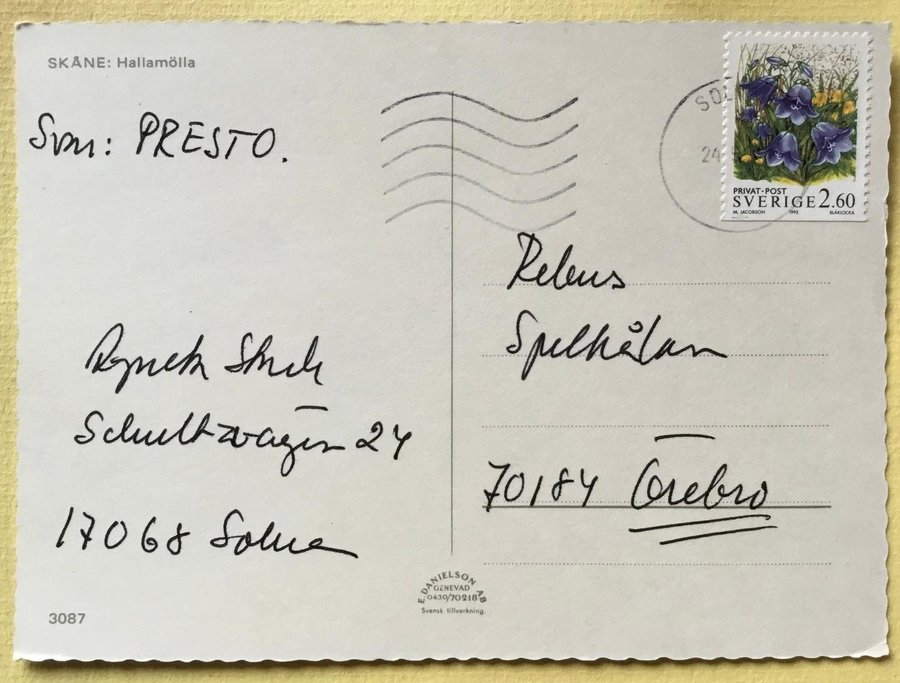 SKÅNE: Hallamölla
Svar: PRESTO.
Schultzvägen 24
17068 Solna
3087
SOL
24
PRIVAT·POST
SVERIGE 2.60
M. JACOBSON 1993 BLÅKLOCKA
Rebus
Spelhålan
70184 Örebro
E. DANIELSON AB
GENEVAD
0430/70218
Svensk tillverkning.